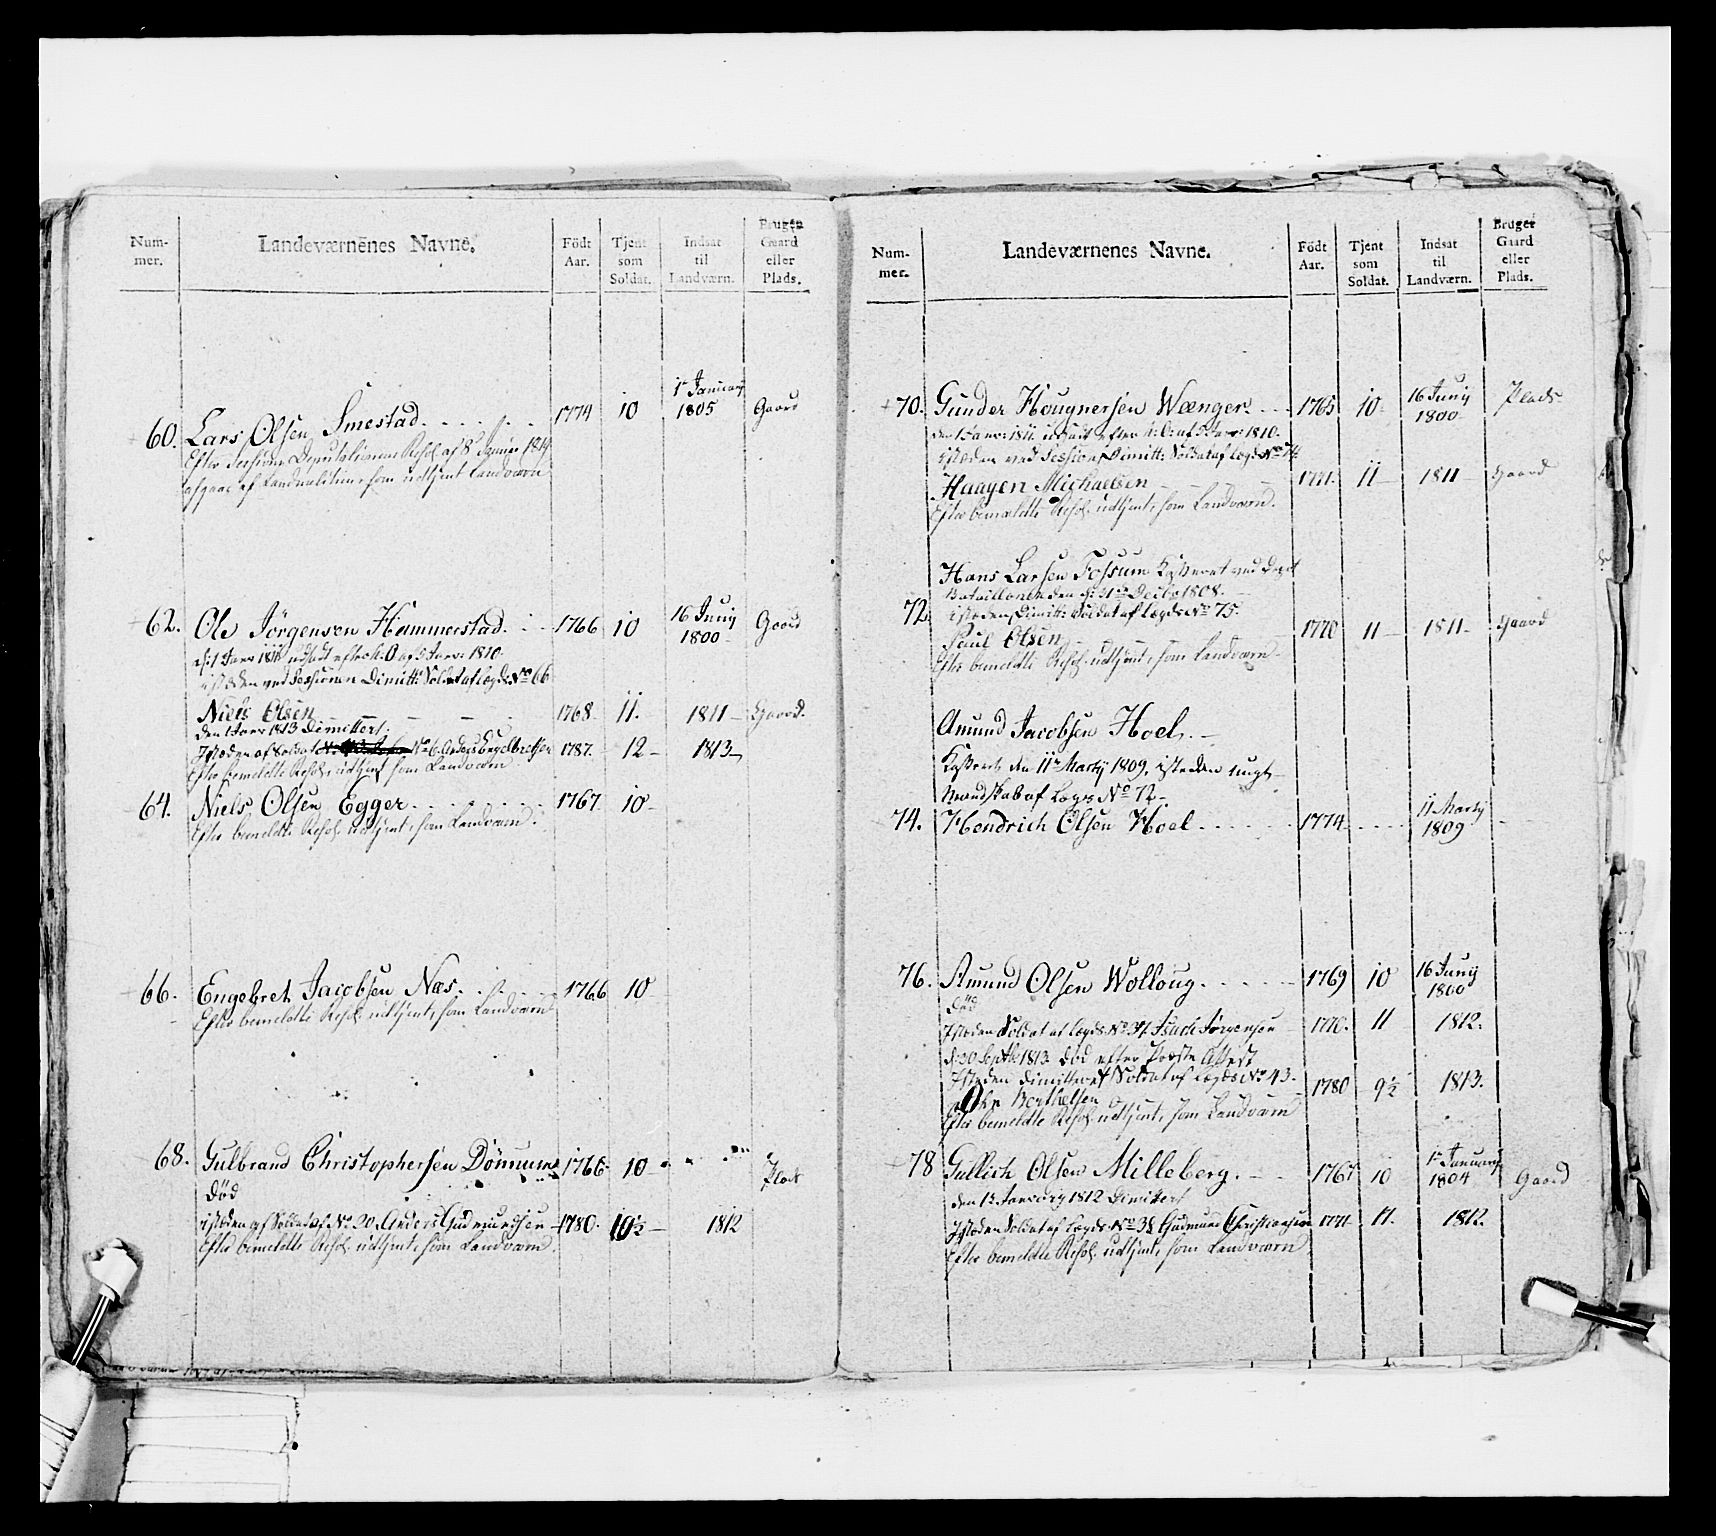 Num-
mer.
Landeværnenes Navne.
Födt
Aar.
Tjent
som
Soldat.
Indsat
til
Landværn.
Bruger
Gaard
eller
Plads.
60. Lars Olsen Smestad 1774 10 1te Januarij 1805 Gaard
Efter Sessions Deputationens Resol. af 8de Januar 1814
afgaaet af Landmilitien, som udtjent Landværn
62. Ole Jörgensen Hammerstad 1766 10 16 Junij 1800 Gaard
d: 1 Janr 1811 udsadt efter K: O: af 5 Janr: 1810.
istæden ved Sessionen Dimitt: Soldat af Lægds No 66
Niels Olsen 1768 11. 1811 Gaard.
den 1 Janr 1813 Dimittert
Istæden af Soldat No 6 Anders Engelbretsen 1787. 12 1813
Efter bemeldte Resol. udtjent som Landværn
64. Niels Olsen Egger 1767 10
Efter bemeldte Resol. udtjent, som Landværn.
66. Engebret Jacobsen Næs 1766 10
Efter bemeldte Resol. udtjent, som Landværn
68. Gulbrand Christophersen Dönnum 1766 10 Plads
Död
istæden af Soldat af No 20. Anders Gudmundsen 1780. 10½ 1812
Efter bemeldte Resol. udtjent, som Landværn
Num-
mer.
Landeværnenes Navne.
Födt
Aar.
Tjent
som
Soldat.
Indsat
til
Landværn.
Bruger
Gaard
eller
Plads.
70. Gunder Hougnersen Wænger 1765 10 16 Junij 1800 Plads
den 1 Janr: 1811 udsadt efter K: O: af 5 Janr: 1810.
istæden ved Session Dimitt: Soldat af Lægds No 74
Haagen Michaelsen 1771. 11 1811 Gaard
Efter bemeldte Resol. udtjent, som Landværn.
Hans Larsen Fossum Kasseret ved Depot
Bataillonen den 31te Decbr 1808.
72. istæden Dimitt: Soldat af Lægds No 75.
Paul Olsen 1770 11 1811 Gaard
Efter bemeldte Resol. udtjent, som Landværn
Amund Jacobsen Hoel.
Kasseret den 11te Martij 1809, istæden ungt
Mandskab af Lægs No 72
74. Hendrich Olsen Hoel 1774 11 Martij 1809
76. Amund Olsen Wolloug 1769 10 16 Junij 1800
Död
Istæden Soldat af Lægds No 31. Isach Jörgensen 1770. 11 1812.
d: 30 Septbr 1813 död efter Præste Attest
Istæden dimitteret Soldat af Lægds No 43.
Ole Berthelsen 1780 9½ 1813.
Efter bemeldte Resol. udtjent, som Landværn
78 Gullich Olsen Milleberg. 1767 10 1te Januarij 1804 Gaard
den 1te Januarij 1812 Dimittert
Istæden Soldat af Lægds No 38 Gudmund Christiansen 1771 11. 1812.
Efter bemeldte Resol. udtjent, som Landværn